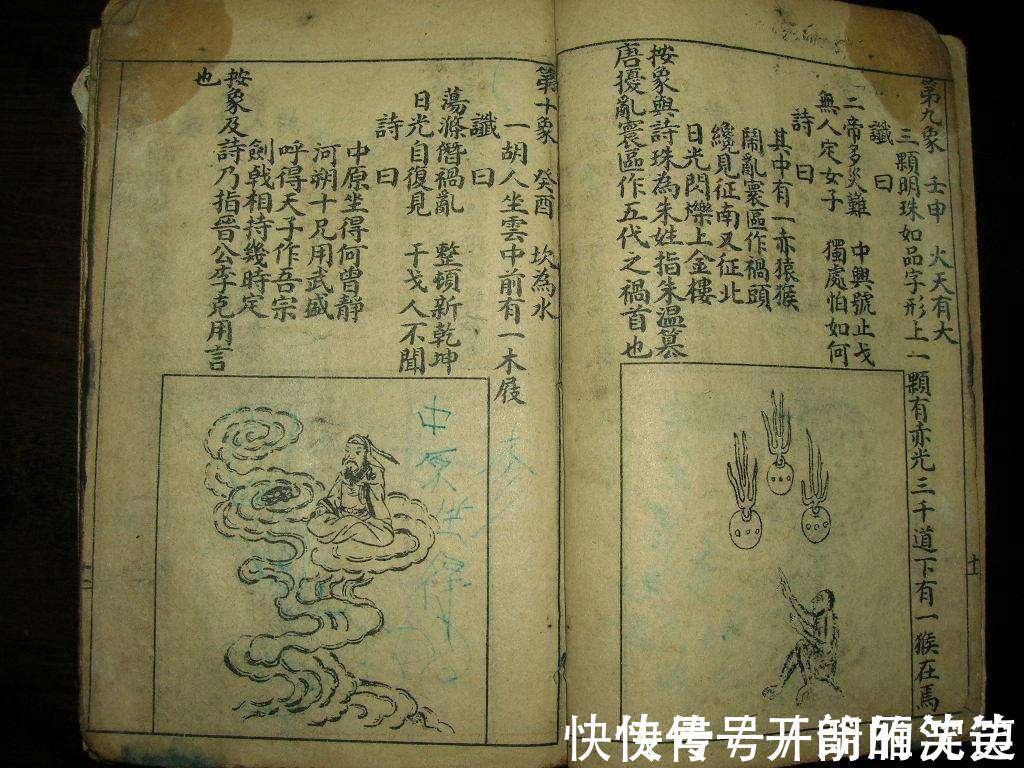 第九象 壬申 火天有大
三顆明珠如品字形上一顆有赤光三十道下有一猴在焉
讖曰
二帝多災難 中興號止戈
無人定女子 獨處怕如何
詩曰
其中有一赤猿猴
鬧亂寰區作禍頭
纔見征南又征北
日光閃爍上金樓
按象與詩珠為朱姓指朱溫篡
唐擾亂寰區作五代之禍首也
十
第十象 癸酉 坎為水
一胡人坐雲中前有一木屐
讖曰
蕩滌僭禍亂 整頓新乾坤
日光自復見 干戈人不聞
詩曰
中原坐得何曾靜
河朔十兄用武盛
呼得天子作吾宗
劍戟相持幾時定
按象及詩乃指晉公李克用言
也
中原